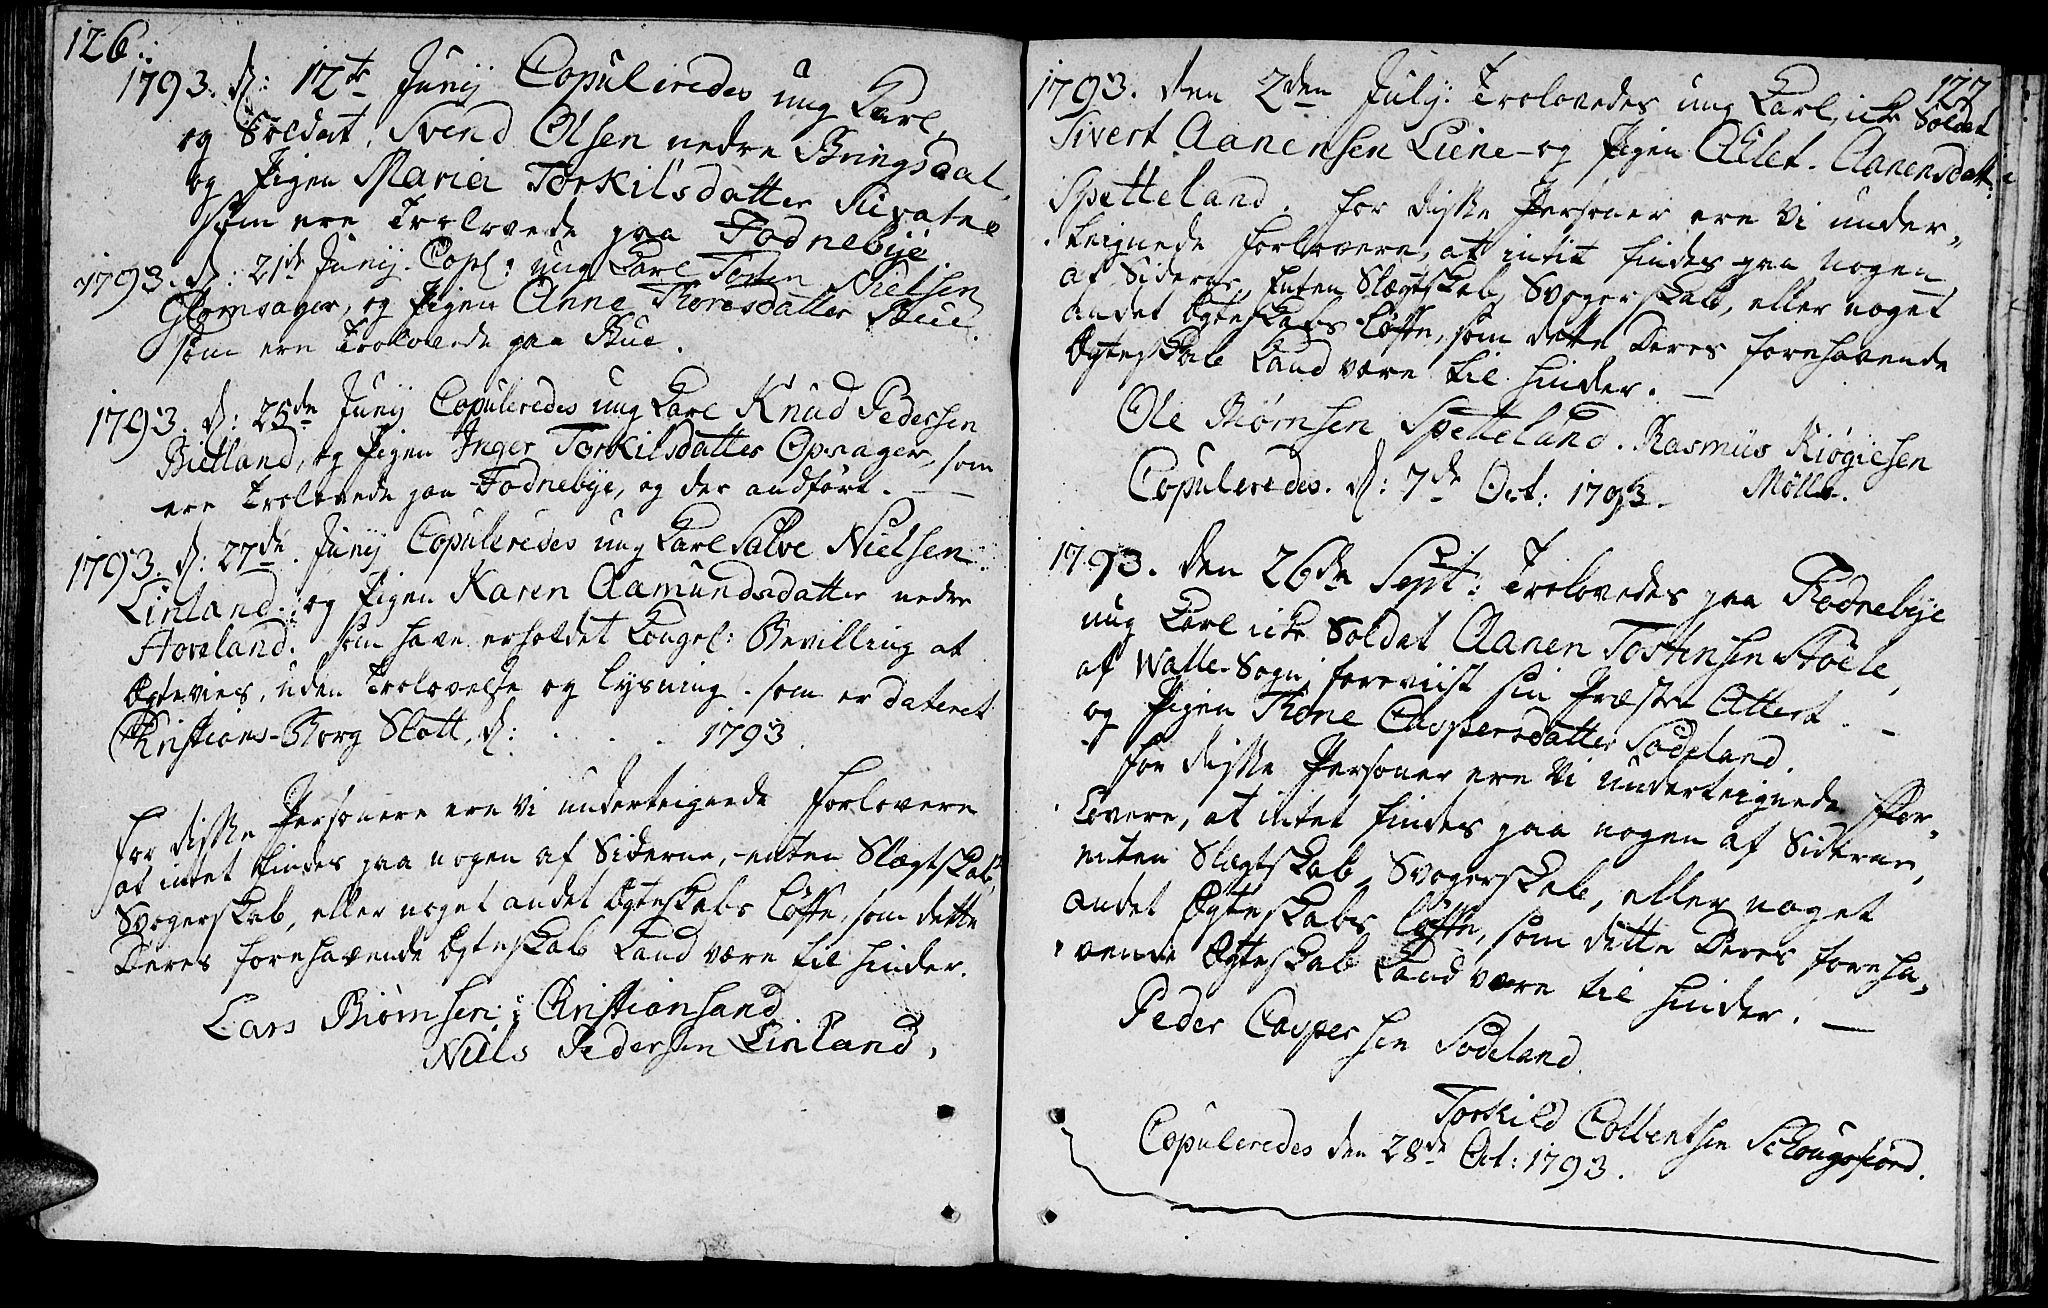 126.
1793. d: 12te Junij Copuleredes ung Karl,
og Soldat, Svend Olsen nedre Bringsdal,
og Pigen Maria Torkilsdatter
som ere Trolovede paa Fodnebÿe.
1793. d: 21de Junij. Copl: ung Karl Nielsen
og Pigen Anne Thoresdatter Bue.
som ere Trolovede paa Bue.
1793. d: 25de Junij Copuleredes ung Karl Knud Pedersen
Bietland, og Pigen Inger Torkilsdatter Opsager, som
ere Trolovede paa Fodnebÿe, og der anført.
1793. d: 27de. Junij Copuleredes ung Karl Salve Nielsen
Linland. og Pigen Karen Aamundsdatter nedre
Hoveland. som have erholdet Kongel: Bevilling at
Egtevies, uden Trolovelse og Lysning. som er dateret
Christians-Borg Slott, d: . . . . 1793.
For disse Personere ere Vi underteignede Forlovere
at intet findes paa nogen af Siderne, enten Slægtskab,
Svogerskab, eller noget andet Egteskabs Løfte, som dette
Deres forehavende Egteskab kand være til hinder.
Lars Biørnsen i Christiansand
Niels Pedersen Linland.
127
1793. den 2den July: Trolovedes ung Karl, icke Soldat
Sivert Aanensen Liene og Pigen Allet Aanensdatt:
Spetteland. For disse Personer ere Vi under-
teignede Forlovere, at intit findes paa nogen
af Siderne, Enten Slægtskab, Svogerskab, eller noget
andet Egteskabs Løfte, som dette Deres forehavende
Egteskab kand være til hinder. —
Ole Biørnsen Spetteland. Rasmus Kiøgiesen
Copuleredes. d: 7de Oct: 1793. Mölle.
1793. den 26de Sept: Trolovedes paa Fodnebÿe
ung Karl icke Soldat Aanen Tostensen Støele,
af Walle-Sogn, foreviist sin Præstes Attest.
og Pigen Thone Caspersdatter Sodeland.
For disse Personer ere Vi underteignede For-
lovere, at intet findes paa nogen af Siderne,
enten Slægtskab, Svogerskab, eller noget
andet Egteskabs Løfte, som dette Deres foreha-
vende Egteskab kand være til hinder. —
Peder Caspersen Sodeland.
Torkild Colbentsen
Copuleredes den 28de Oct: 1793.